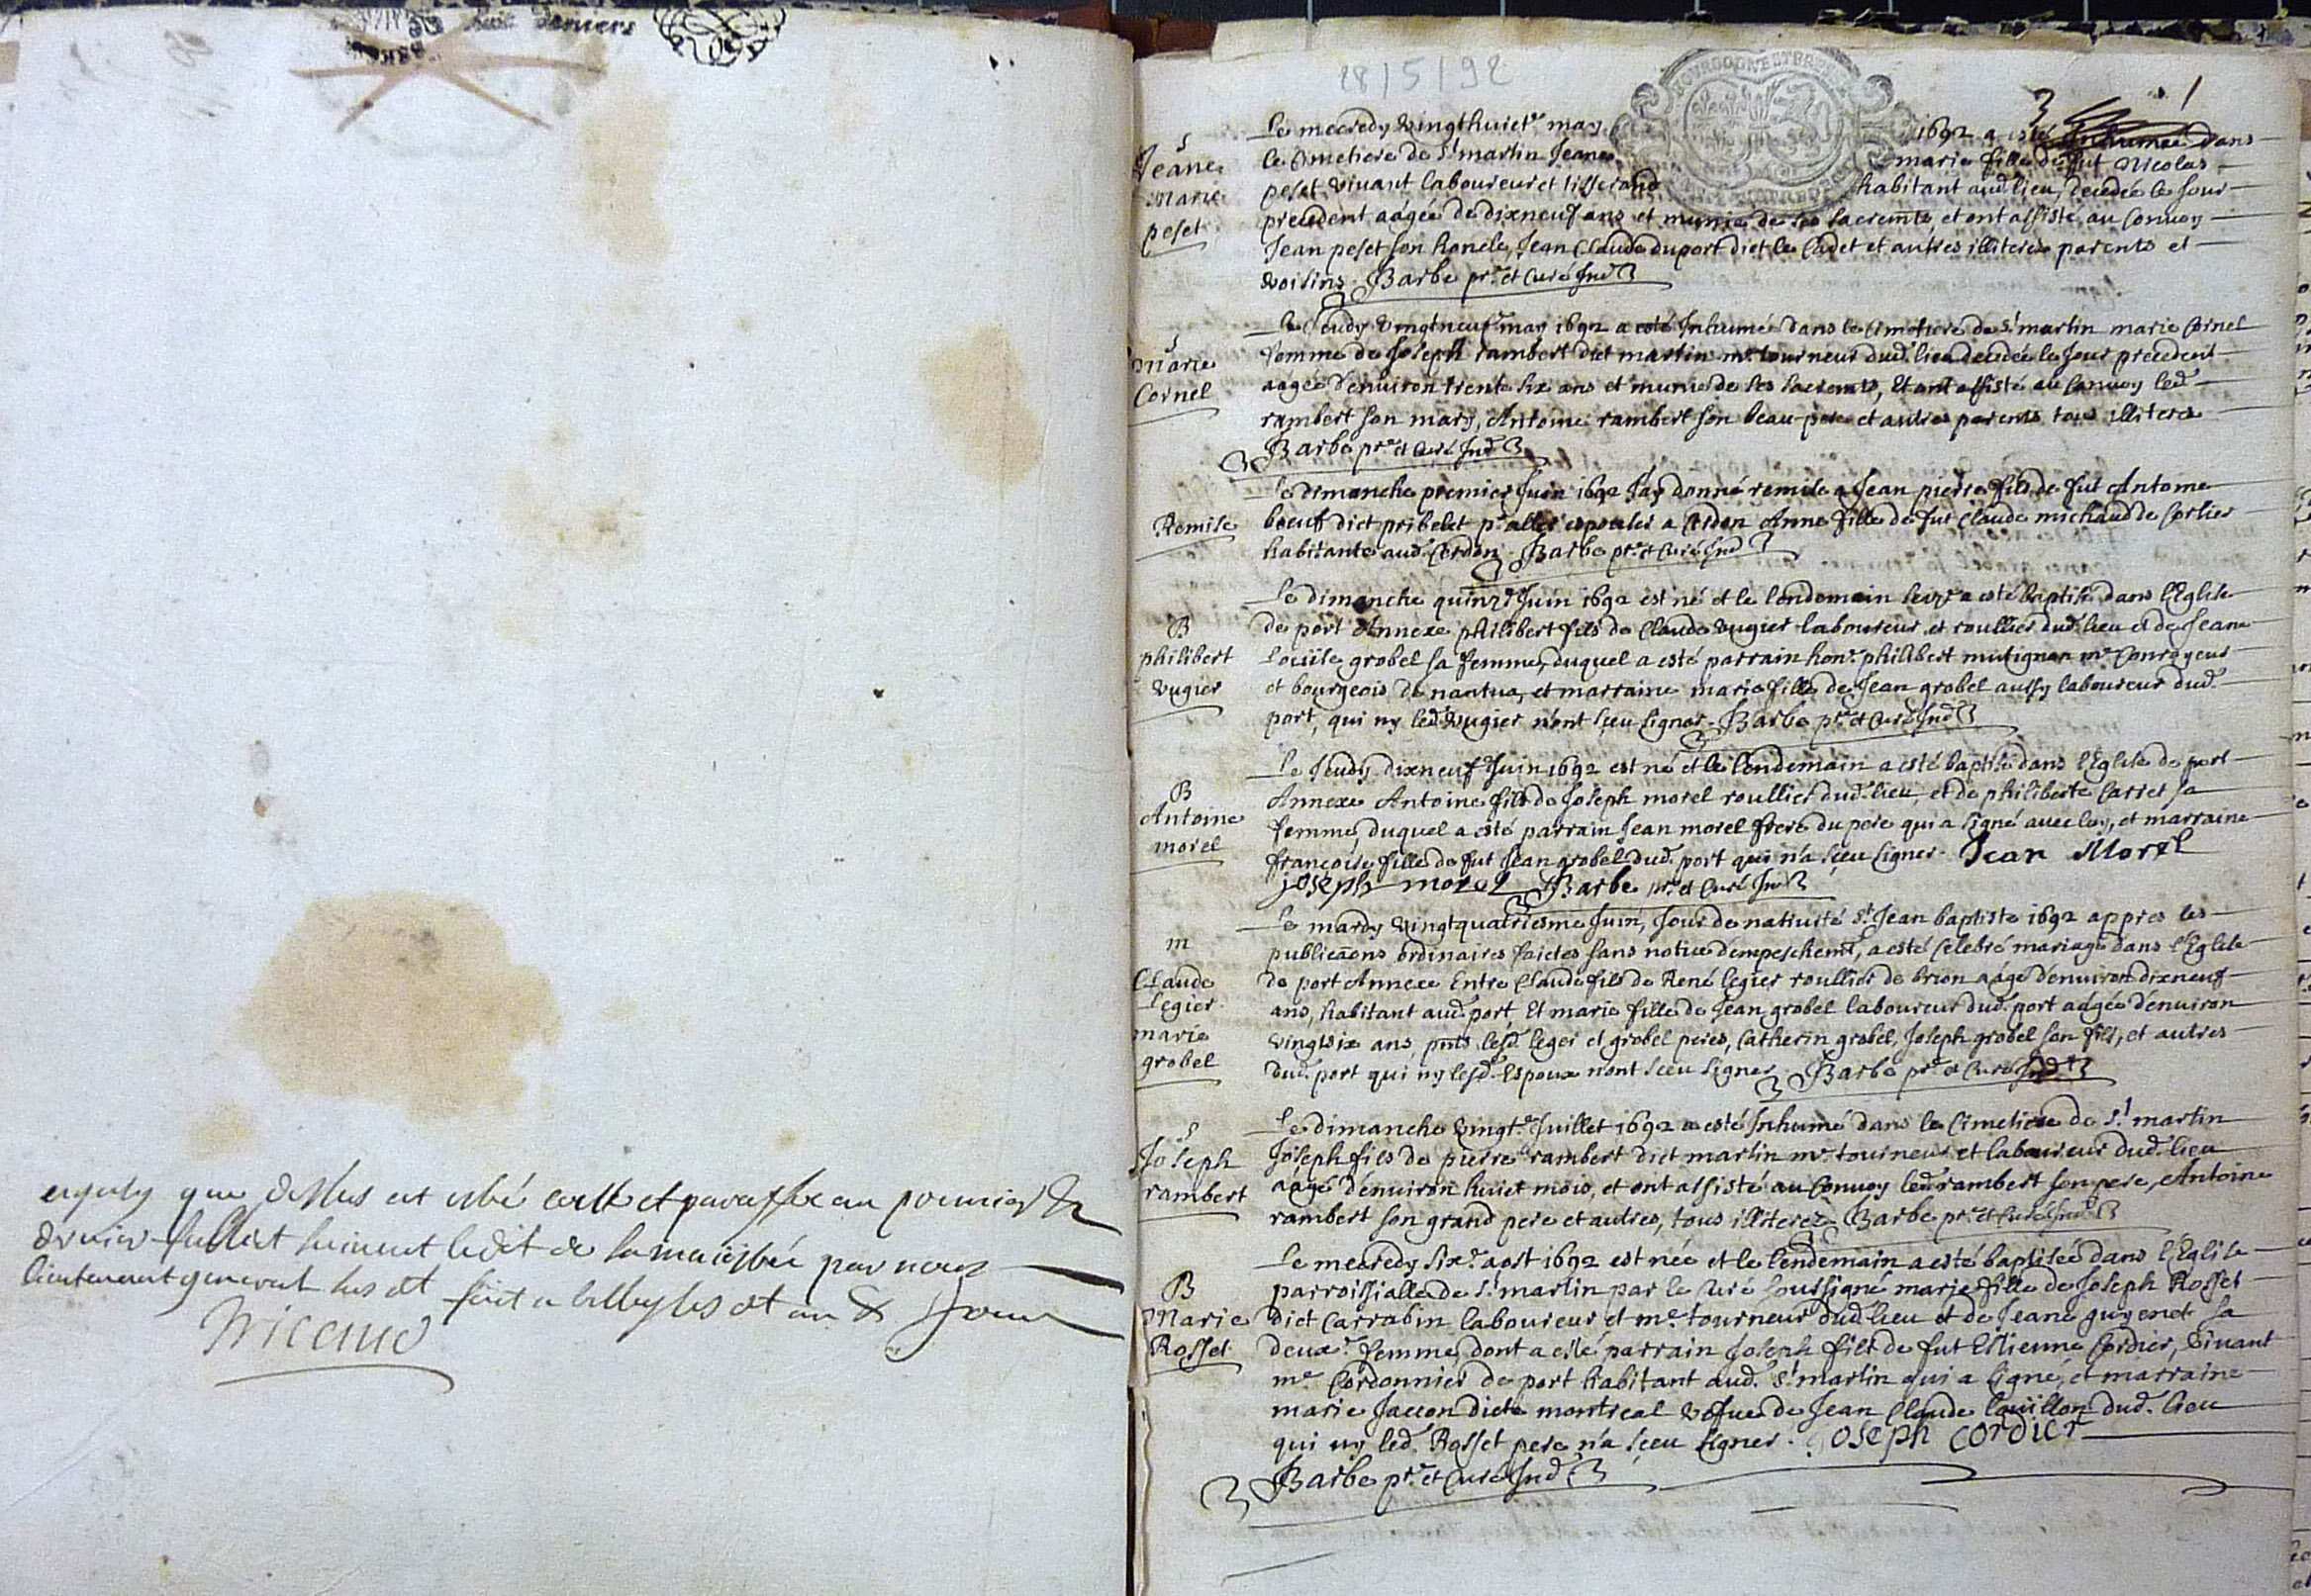 huit deniers
eagesly que dessus est esté cotté et paraffé au premier &
dernier fulliet suivant ledit de sa majesté par nous
lieutenant general sus dt fait a belley les dt an & jour
Tricaud
28/5/92
1
BOURGOGNE ET BRESSE
S
Jeane
Marie
peset
Le mecredy vingthuicte may 1692 a esté Inhumée dans
le Cimetiere de St martin Jeane marie fille de fut Nicolas
peset vivant laboureur et tisserand habitant aud. lieu, decedée le Jour
precedent aâgée de dixneuf ans et munie de ses sacremts, et ont assisté au Convoy
Jean peset son honcle, Jean Claude duport dict le Cadet et autres illiterez parents et
voisins. Barbe ptre et Curé Ind
S
Marie
Cornel
Le Jeudy vingtneufe may 1692 a esté Inhumée dans le Cimetiere de St martin marie Cornel
femme de Joseph rambert dict martin me tourneur dud. lieu decedée le Jour precedent
aâgée d'environ trente six ans et munie de ses sacremts, Et ont assisté au Convoy led.
rambert son mary, Antoine rambert son beau-pere et autres parents tous illiterez
Barbe ptre et Curé Ind
Remise
Le dimanche premier Juin 1692 Jay donné remise a Jean pierre fils de fut Antoine
boeuf dict pribelet pr aller espouser a Cerdon Anne fille de fut Claude michaud de Corlier
habitante aud. Cerdon. Barbe ptre et Curé Ind
B
philibert
vugier
Le dimanche quinze Juin 1692 est né et le lendemain seize a esté baptisé dans l'Eglise
de port Annexe philibert fils de Claude vugier laboureur et roullier dud. lieu et de Jeane
Louïse grobel sa femme, duquel a esté parrain hon. philibert mutignon me Conroyeur
et bourgeois de nantua, et marraine marie fille de Jean grobel aussy laboureur dud.
port, qui ny led. vugier n'ont sçeu signer. Barbe ptre et Curé Ind
B
Antoine
morel
Le Jeudy dixneufe Juin 1692 est né et le lendemain a esté baptisé dans l'Eglise de port
Annexe Antoine fils de Joseph morel roullier dud. lieu, et de philiberte Carrer sa
femme, duquel a esté parrain Jean morel frere du pere qui a signé avec luy, et marraine
françoise fille de fut Jean grobel dud. port qui n'a sçeu signer. Jean Morel
joseph morel Barbe ptre et Curé Ind
m
Claude
Legier
marie
grobel
Le mardy vingtquatriesme Juin, Jour de nativité St Jean baptiste 1692 appres les
publicaons ordinaires faictes sans notice d'empeschemt, a esté Celebré mariage dans l'Eglise
de port Annexe Entre Claude fils de René legier roullier de brion aâgé d'environ dixneuf
ans, habitant aud. port, Et marie fille de Jean grobel laboureur dud. port aâgée d'environ
vingtsix ans, pnts lesd. leger et grobel peres, Catherin grobel, Joseph grobel son fils, et autres
dud. port qui ny lesd. Espoux n'ont sceu signer. Barbe ptre et Curé Ind
S
Joseph
rambert
Le dimanche vingte Juillet 1692 a esté Inhumé dans le Cimetiere de St martin
Joseph fils de pierre rambert dict martin me tourneur et laboureur dud. lieu
aagé d'environ huict mois, et ont assisté au Convoy led. rambert son pere, Antoine
rambert son grand pere et autres, tous illiterez. Barbe ptre et Curé Ind
B
Marie
Rosset
Le mecredy sixe aost 1692 est née et le lendemain a esté baptisée dans l'Eglise
parroissialle de St martin par le Curé soussigné marie fille de Joseph Rosset
dict Carrabin laboureur et me tourneur dud. lieu et de Jeane guyenet sa
deuxe femme, dont a esté parrain Joseph fils de fut Estienne Cordier, vivant
me Cordonnier de port habitant aud. St martin qui a signé, et marraine
marie Jaccon dicte montreal vefve de Jean Claude louillon dud. lieu
qui ny led. Rosset pere n'a sçeu signer. Joseph cordier
Barbe ptre et Curé Ind